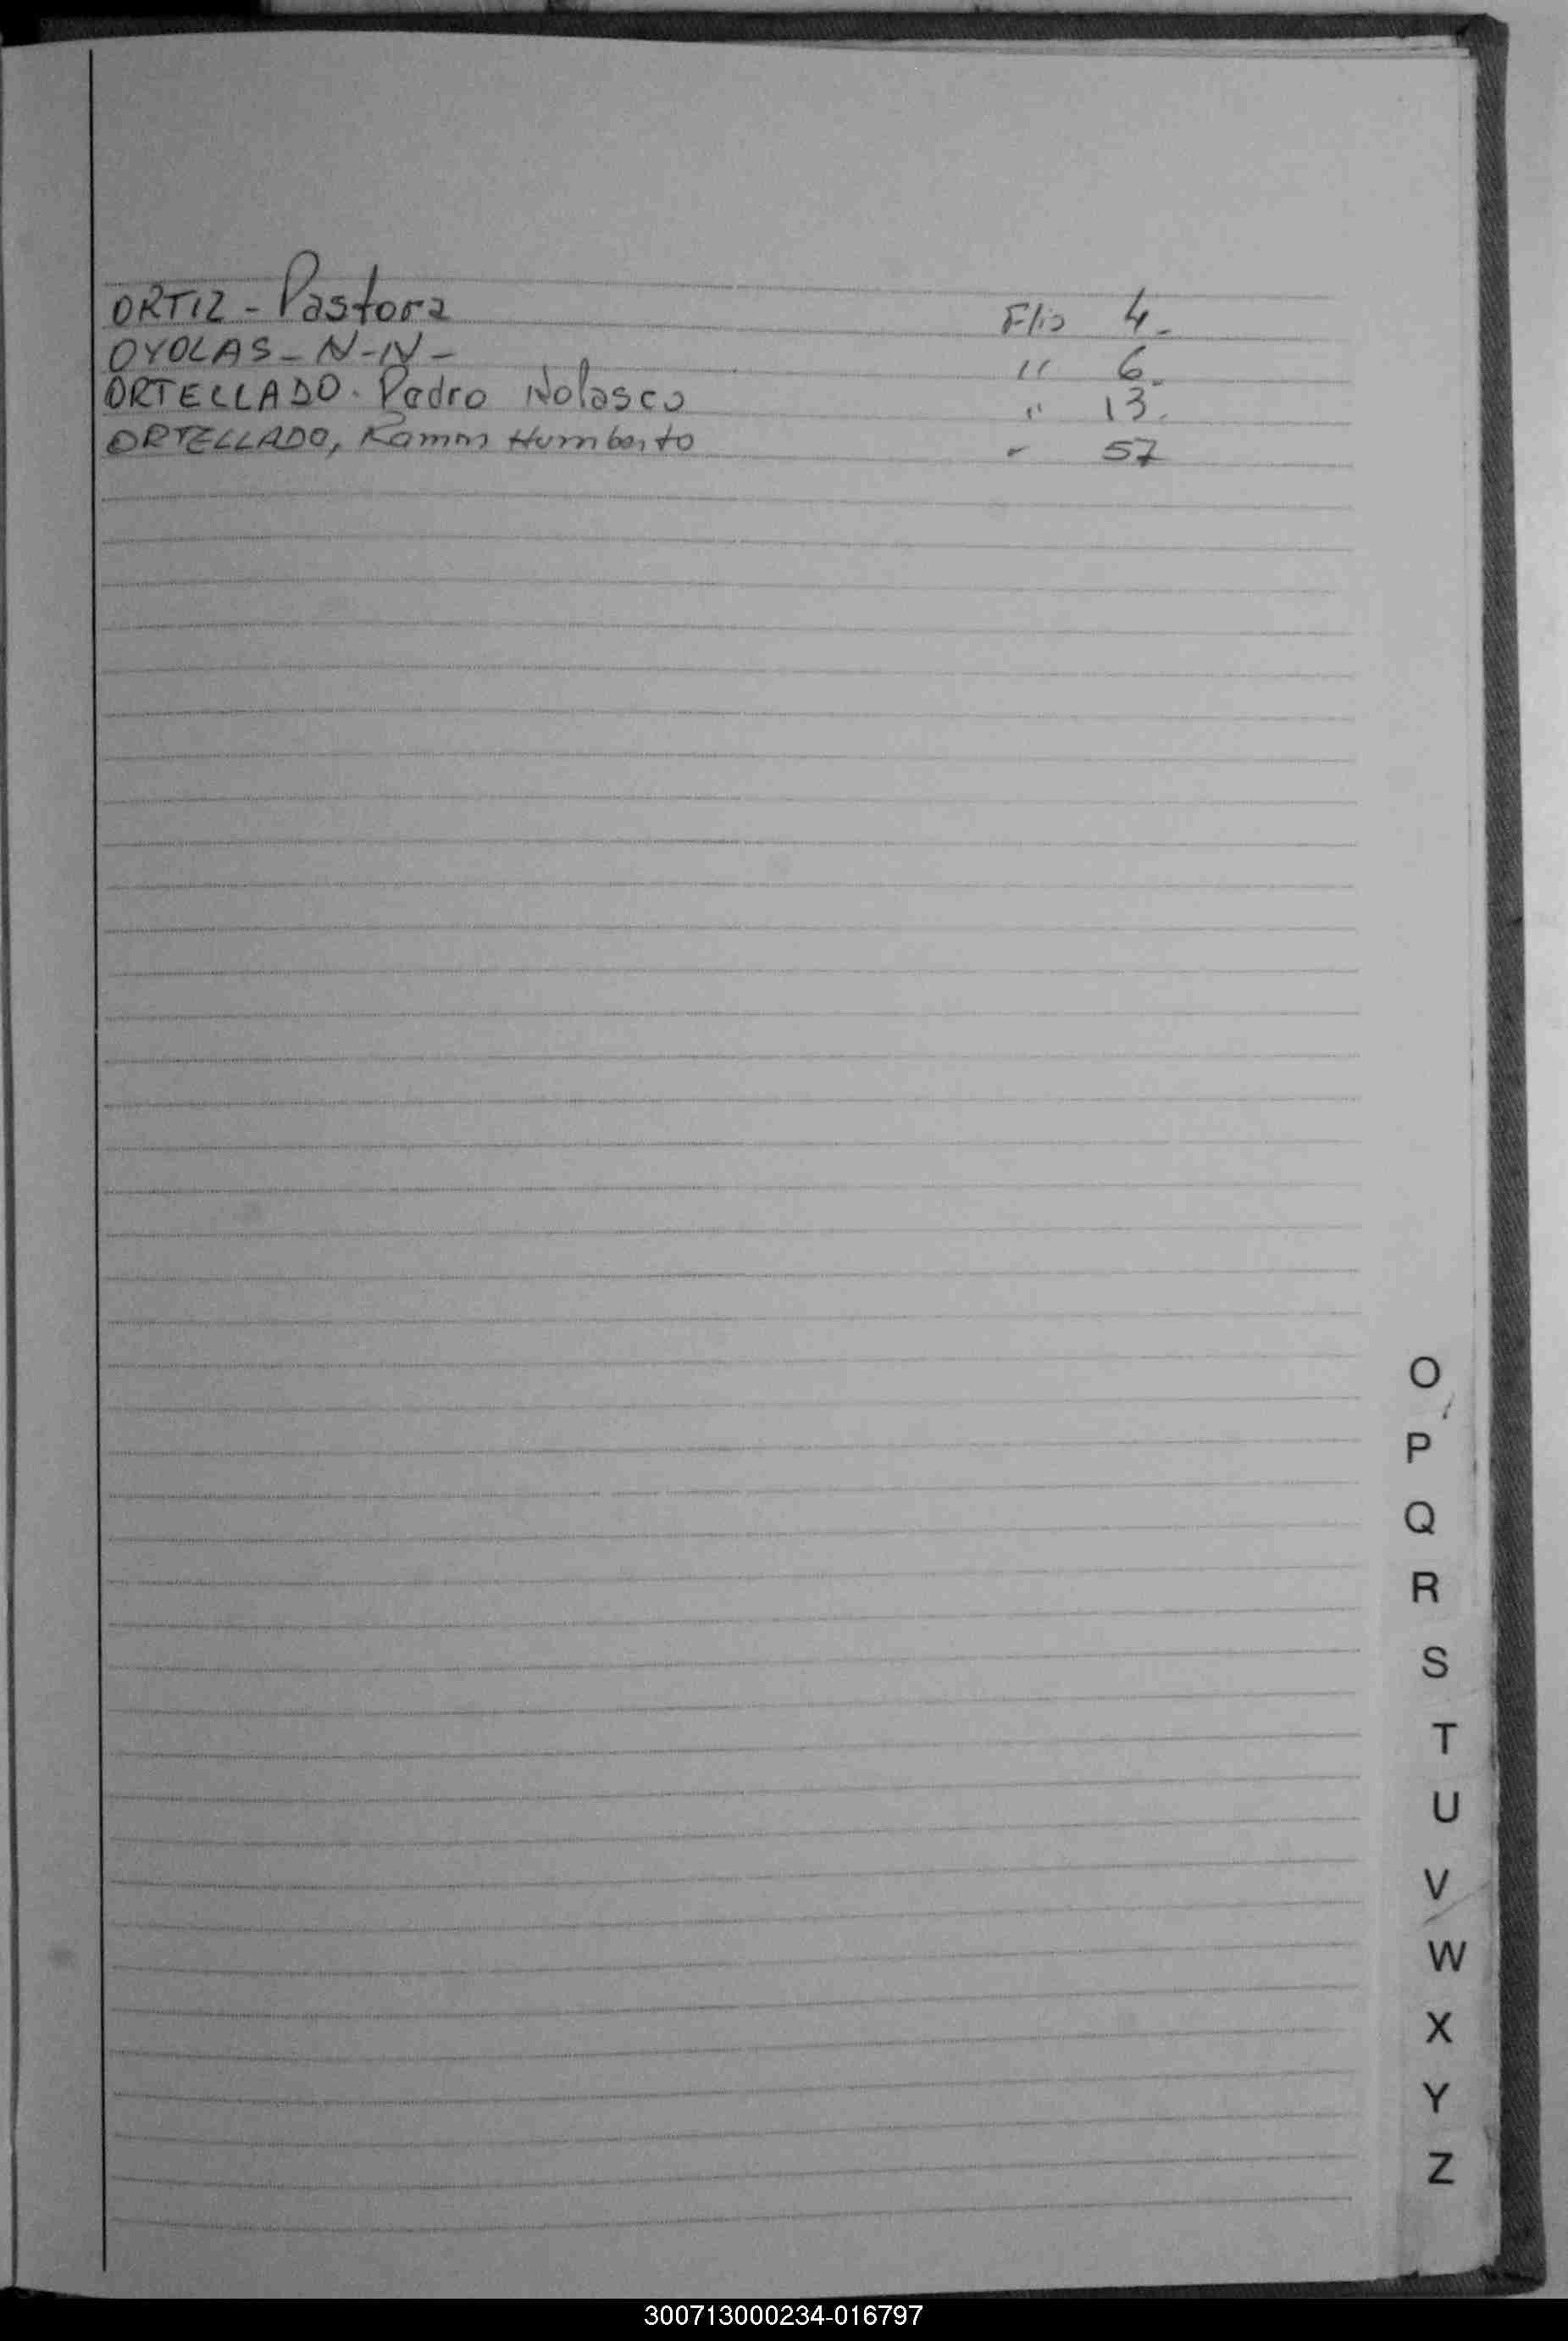 ORTIZ - Pastora Flio 4.
OYOLAS - N-N- " 6.
ORTELLADO. Pedro Nolasco " 13.
ORTELLADO, Ramon Humberto " 57
O
P
Q
R
S
T
U
V
W
X
Y
Z
300713000234-016797